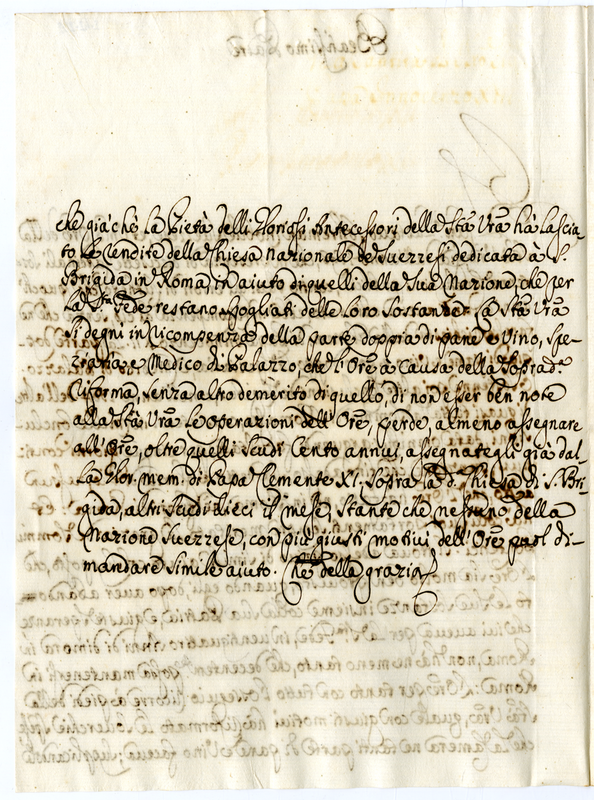 che già chè la Pietà delli Gloriosi Antecessori della Stà Vrã hà lascia-
to le rendite della Chiesa Nazionale de Suezzesi dedicata à S.
Brigida in Roma, in aiuto di quelli della Sua Nazione, che per
la Sta Fede restano spogliati delle loro Sostanze. La Stà Vrã
Si degni in ricompenza della parte doppia di pane e vino, Spe-
ziaria, e Medico di Palazzo, che l'Ore à causa della Soprad.a
Riforma, senza altro demerito di quello, di non esser ben note
alla Stà Vrã le operazioni dell'Ore, perde, almeno assegnare
all'Ore, oltre quelli Scudi Cento annui, assegnategli già dal-
la Glor. mem. di Papa Clemente XI. Sopra la d. Chiesa di S. Bri-
gida, altri Scudi dieci il mese, Stante che nessuno della
Nazione Suezzese, con più giusti motivi dell'Ore puol di-
mandare simile aiuto. Che della grazia